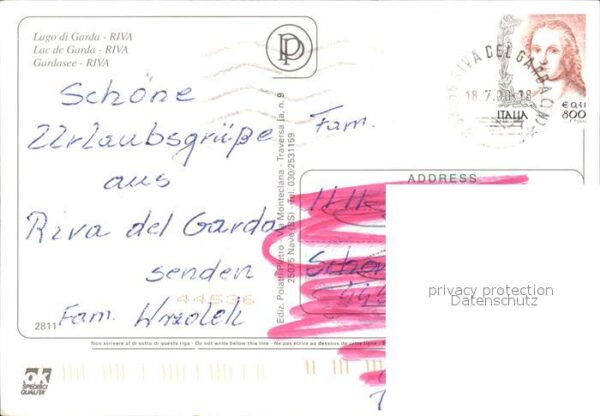 Lago di Garda - RIVA
Lac de Garda - RIVA
Gardasee - RIVA
Schöne
Urlaubsgrüße
aus
Riva del Garda
senden
Fam. Wrzolek
Fam.
44536
2811
Ediz. Poiatti Pietro - Via Monteclana - Traversa Ia, n. 9
25075 Nave (BS) - Tel. 030/2531159
RIVA DEL GARDA
18.7.00-18
ITALIA
€ 0,41
800
ADDRESS
privacy protection
Datenschutz
Non scrivere al di sotto di questa riga - Do not write below this line - Ne pas écrire au dessous de cette ligne
OK
SPEDISCI
QUALITÀ!